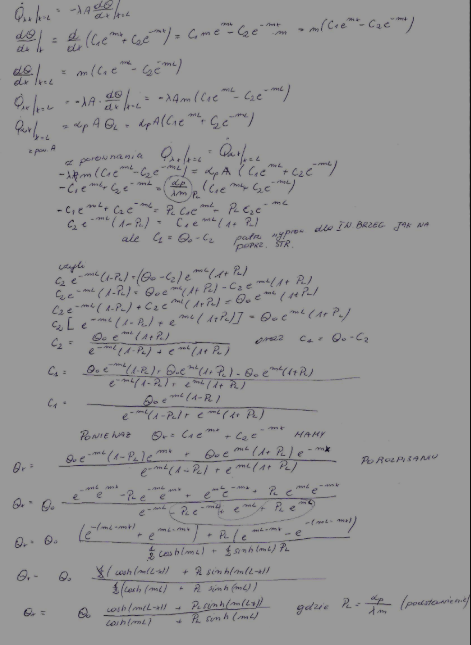 Q̇λx|x=L = -λA dΘ/dx|x=L
dΘ/dx|x = d/dx (C1e^mx + C2e^-mx) = C1me^mx - C2e^-mx · m = m(C1e^mx - C2e^-mx)
dΘ/dx|x=L = m(C1e^mL - C2e^-mL)
Q̇λx|x=L = -λA · dΘ/dx|x=L = -λAm(C1e^mL - C2e^-mL)
|x=L = αpAΘL = αpA(C1e^mL + C2e^-mL)
z porównania Q̇λx|x=L = |x=L
-λAm(C1e^mL - C2e^-mL) = αpA(C1e^mL + C2e^-mL)
-C1e^mL + C2e^-mL = (αp/λm) PL (C1e^mL + C2e^-mL)
C2e^-mL(1-PL) = C1e^mL(1+PL)
ale dla IN BRZEG. JAK NA
POPRZ. STR.
czyli
C2e^-mL(1-PL) = (Θ0-C2)e^mL(1+PL)
C2e^-mL(1-PL) = Θ0e^mL(1+PL) - C2e^mL(1+PL)
C2e^-mL(1-PL) + C2e^mL(1+PL) = Θ0e^mL(1+PL)
C2[e^-mL(1-PL) + e^mL(1+PL)] = Θ0e^mL(1+PL)
C2 = Θ0e^mL(1+PL) / e^-mL(1-PL) + e^mL(1+PL) oraz C1 = Θ0-C2
C1 = / e^-mL(1-PL) + e^mL(1+PL)
C1 = Θ0e^-mL(1-PL) / e^-mL(1-PL) + e^mL(1+PL)
PONIEWAŻ Θx = C1e^mx + C2e^-mx MAMY
Θx = Θ0e^-mL(1-PL)e^mx + Θ0e^mL(1+PL)e^-mx / e^-mL(1-PL) + e^mL(1+PL)
Θx = Θ0 e^-mLe^mx - PLe^-mLe^mx + e^mLe^-mx + PLe^mLe^-mx / e^-mL - PLe^-mL + e^mL + PLe^mL
Θx = Θ0
Θx = Θ0 (cosh(m(L-x)) + PL sinh(m(L-x))) / (cosh(mL) + PL sinh(mL))
Θx = Θ0 cosh(m(L-x)) + PL sinh(m(L-x)) / cosh(mL) + PL sinh(mL) gdzie PL = αp/λm (podstawienie)